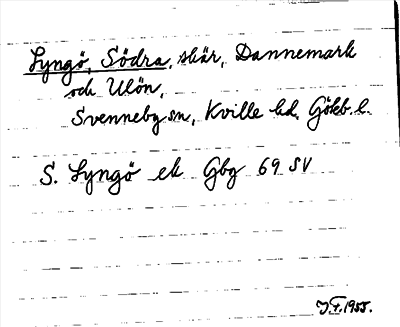 Lyngö, Södra, skär, Dannemark
och Ulön,
Svenneby sn, Kville hd, Göteb. l.
S. Lyngö ek Gbg 69 SV
J.F. 1955.